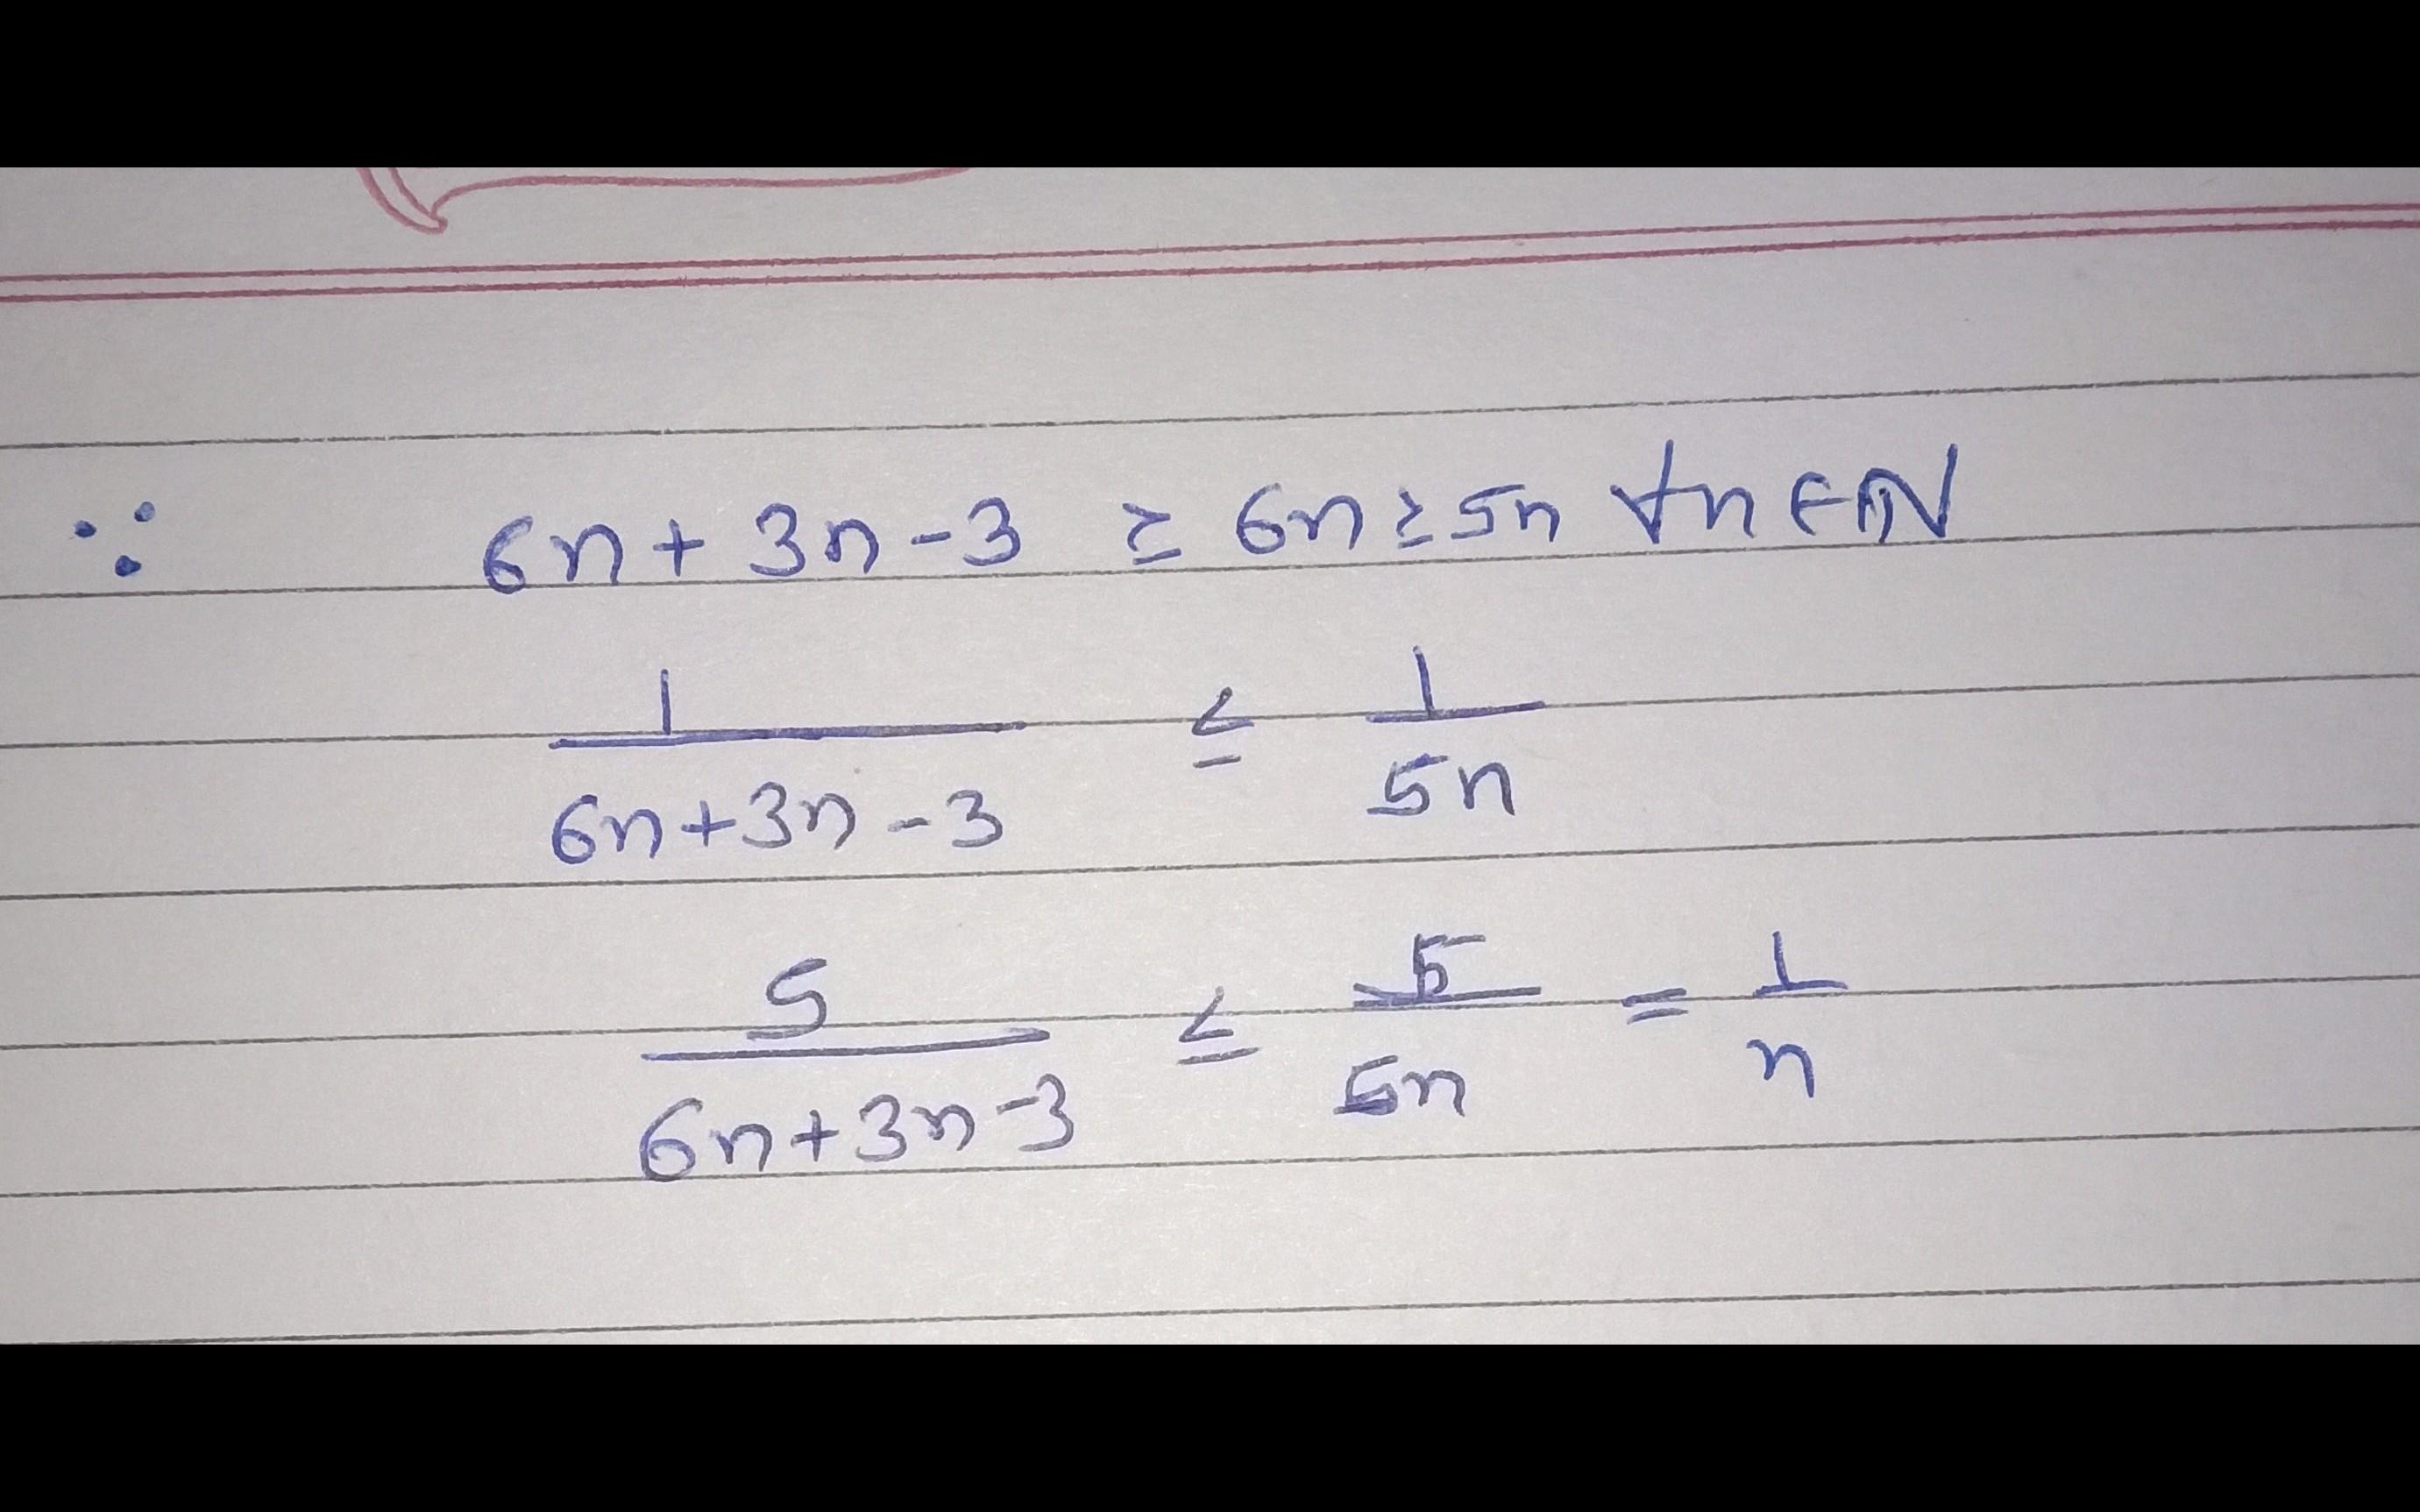 ∵ 6n + 3n - 3 ≥ 6n ≥ 5n ∀n ∈ ℕ
1/(6n+3n-3) ≤ 1/5n
5/(6n+3n-3) ≤ 5/5n = 1/n